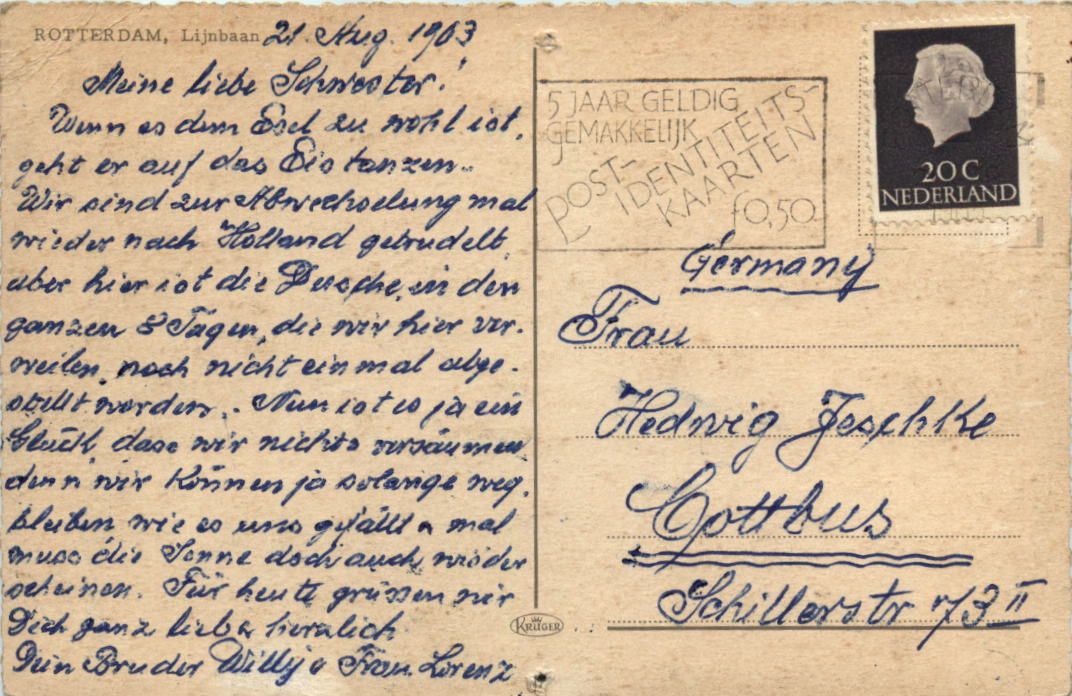 ROTTERDAM, Lijnbaan 21. Aug. 1963
Meine liebe Schwester!
Wenn es dem Esel zu wohl ist,
geht er auf das Eis tanzen..
Wir sind zur Abwechselung mal
wieder nach Holland getrudelt,
aber hier ist die Dusche, in den
ganzen 8 Tagen, die wir hier ver-
weilen, noch nicht einmal abge-
stellt worden.. Nun ist es ja ein
Glück, dass wir nichts versäumen
denn wir können ja solange weg-
bleiben wie es uns gefällt u mal
muss die Sonne doch auch wieder
scheinen. Für heute grüssen wir
Dich ganz lieb u herzlich
Dein Bruder Willy u Frau Lorenz
5 JAAR GELDIG
GEMAKKELIJK
POST-
IDENTITEITS-
KAARTEN
f0,50
20 C
NEDERLAND
Germany
Frau
Hedwig Jeschke
Cottbus
Schillerstr 73 II
KRÜGER